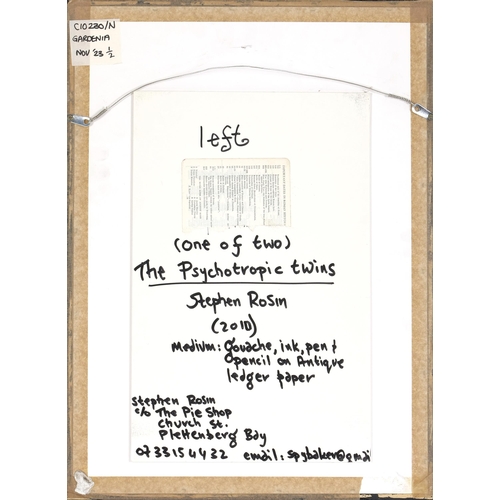 C10280/N
GARDENIA
NOV '23 ½
left
(one of two)
The Psychotropic twins
Stephen Rosin
(2010)
Medium: gouache, ink, pen +
pencil on Antique
ledger paper
Stephen Rosin
c/o The Pie Shop
Church St.
Plettenberg Bay
0733154432 email: spybaker@gmai